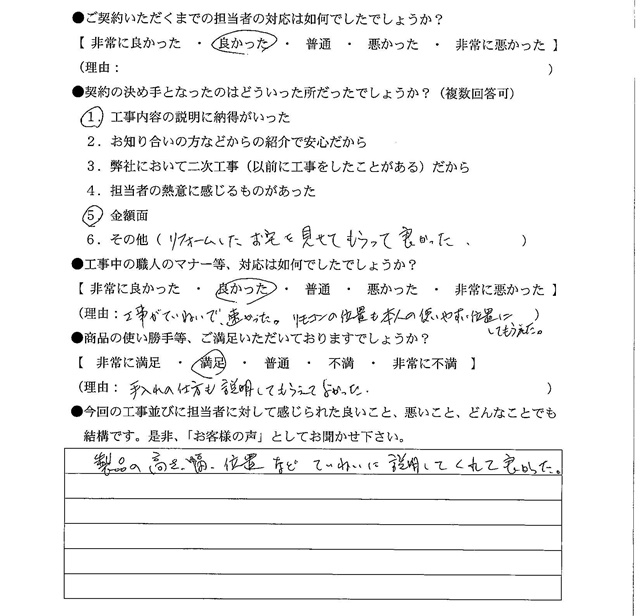 ●ご契約いただくまでの担当者の対応は如何でしたでしょうか？
【 非常に良かった ・ 良かった ・ 普通 ・ 悪かった ・ 非常に悪かった 】
（理由： ）
●契約の決め手となったのはどういった所だったでしょうか？（複数回答可）
1．工事内容の説明に納得がいった
2．お知り合いの方などからの紹介で安心だから
3．弊社において二次工事（以前に工事をしたことがある）だから
4．担当者の熱意に感じるものがあった
5．金額面
6．その他（ リフォームしたお宅を見せてもらって良かった． ）
●工事中の職人のマナー等、対応は如何でしたでしょうか？
【 非常に良かった ・ 良かった ・ 普通 ・ 悪かった ・ 非常に悪かった 】
（理由：工事がていねいで、速かった。リモコンの位置も本人の使いやすい位置に ）
してもらえた。
●商品の使い勝手等、ご満足いただいておりますでしょうか？
【 非常に満足 ・ 満足 ・ 普通 ・ 不満 ・ 非常に不満 】
（理由： 手入れの仕方も説明してもらえてよかった． ）
●今回の工事並びに担当者に対して感じられた良いこと、悪いこと、どんなことでも
結構です。是非、「お客様の声」としてお聞かせ下さい。
製品の高さ、幅、位置など ていねいに説明してくれて良かった。